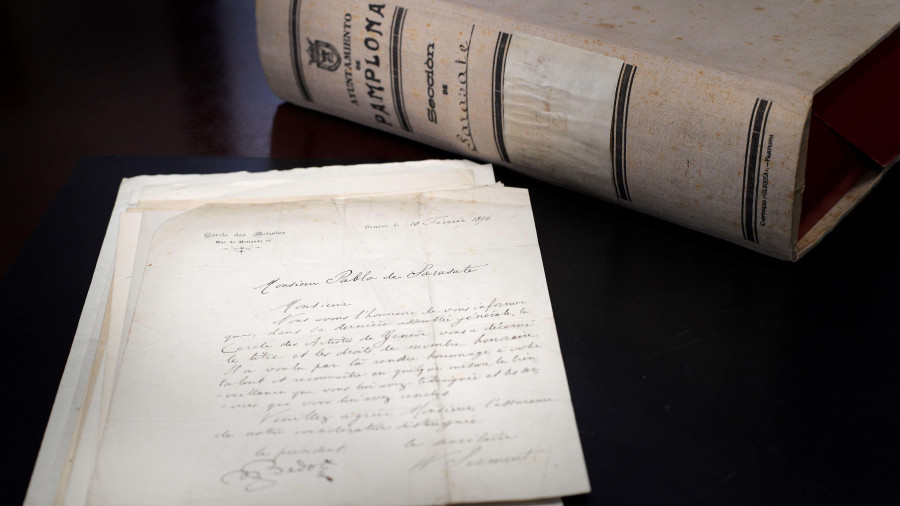 AYUNTAMIENTO
DE
PAMPLONA
Sección
DE
Sarasate
Cercle des Artistes
Genève le 18 Février
Monsieur Pablo de Sarasate
Monsieur
Nous avons l'honneur de vous informer
que, dans sa dernière assemblée générale, le
Cercle des Artistes de Genève vous a décerné
le titre et les droits de membre honoraire.
Il a voulu par là rendre hommage à votre
talent et reconnaître en quelque mesure la bien-
veillance que vous lui avez témoignée et les ser-
vices que vous lui avez rendus.
Veuillez agréer, Monsieur, l'assurance
de notre considération distinguée
le président
le secrétaire